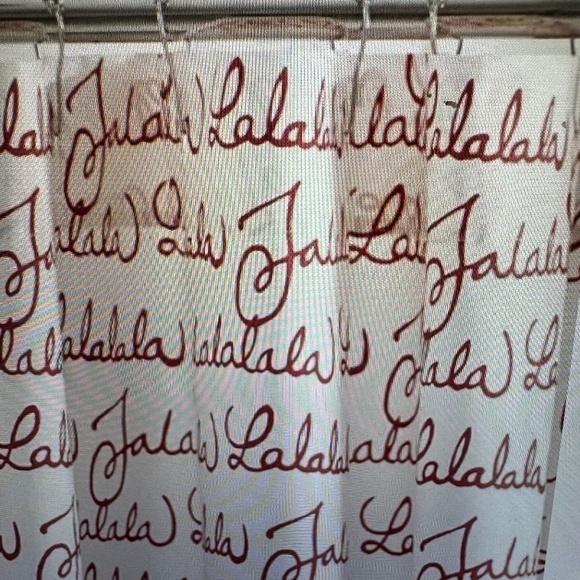 lal Fala Lalala lala lalalala
Fa alala Lala Fala Lal Falala
lala alalala lalalala Fala La
Lala Falala Lalala alala alalala
alala lala Fal La Fala